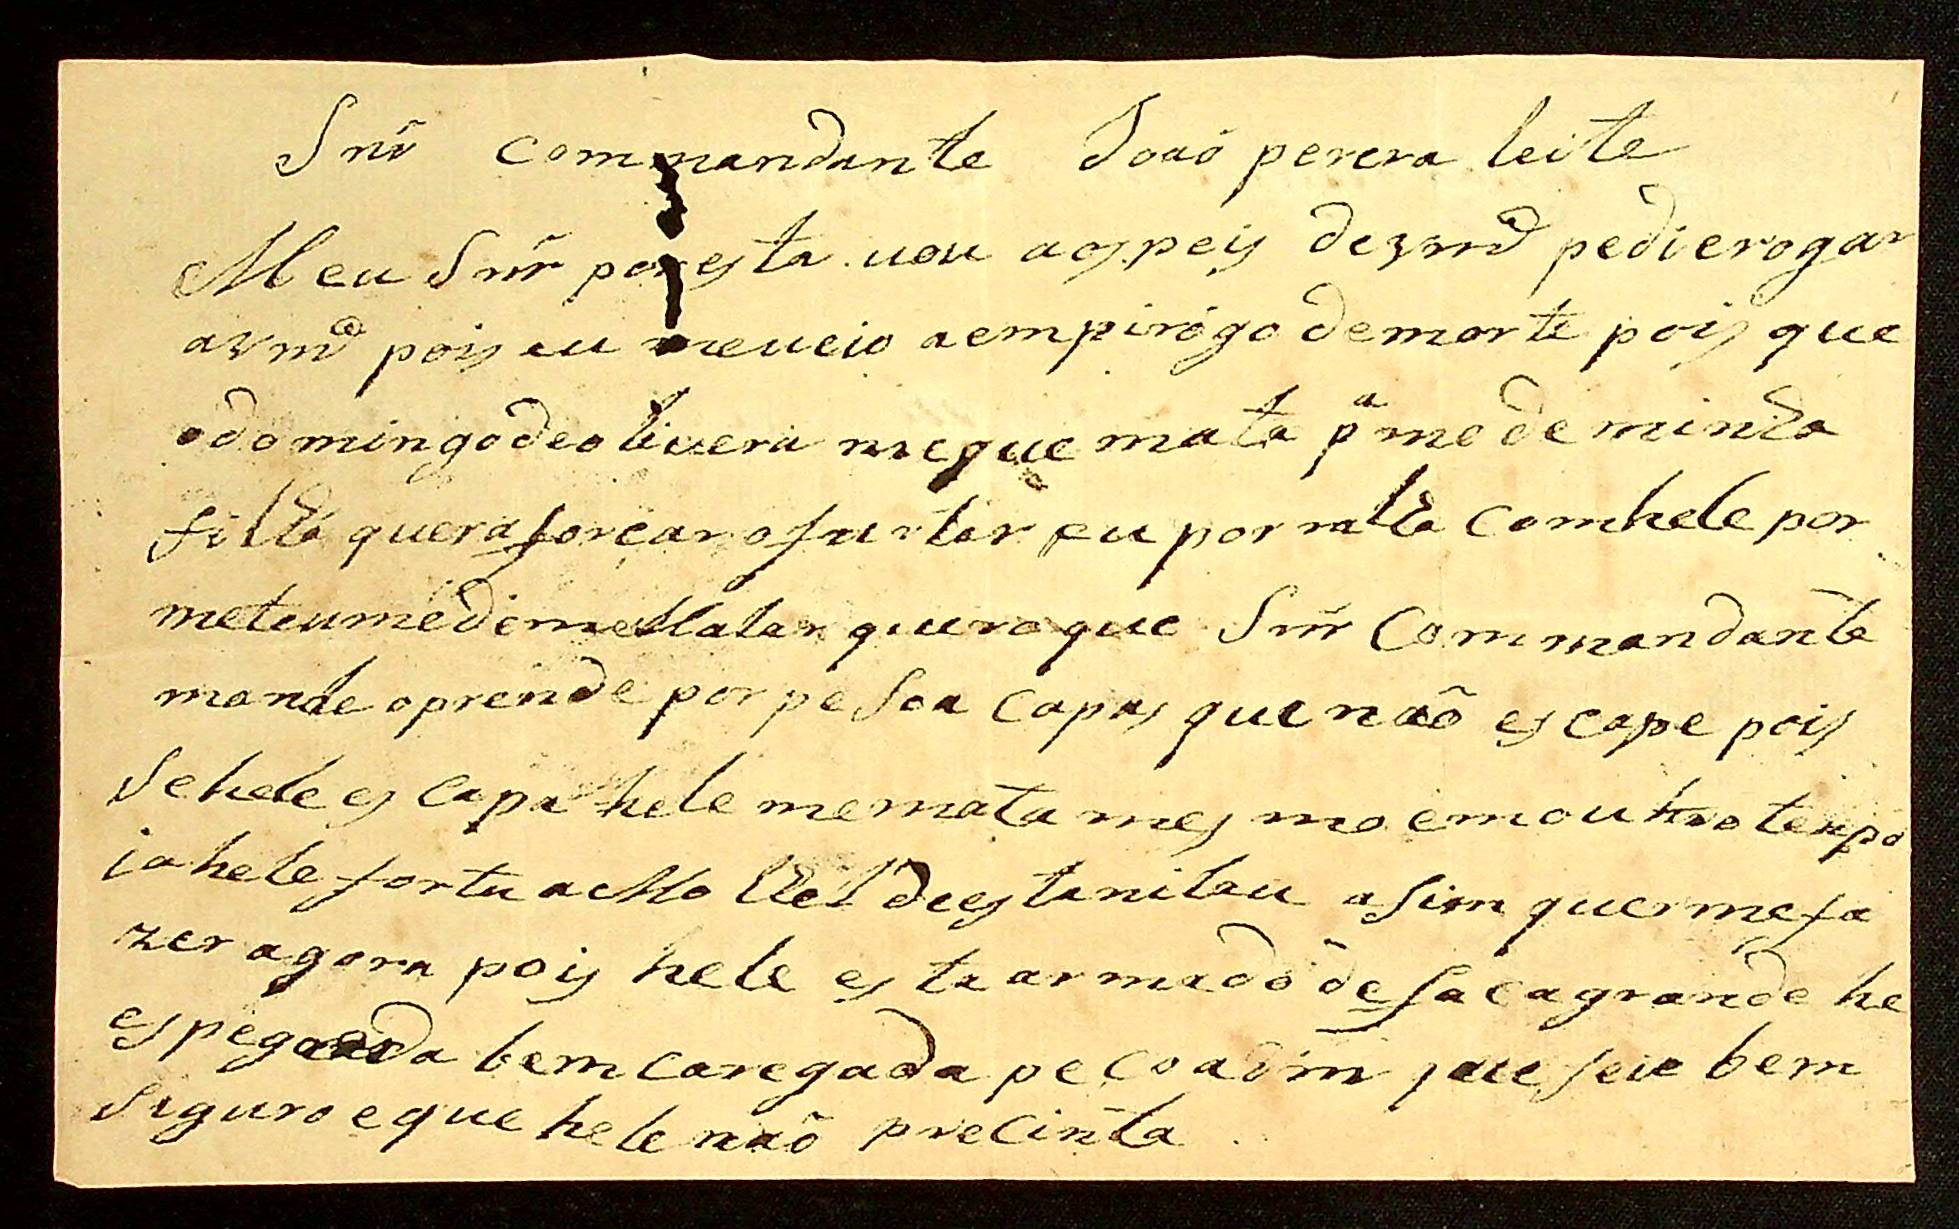 Snr̃ Commandante Joaó perera leite
Meu Snr̃ por esta uou aos peis dezmd pedi erogar
azmd pois eu meueio aempirógo demorte pois que
odomingodeoliuera meque mata pa mede minha
filha quera forcar ofurtar eu por ralha comhele por
meteumedeme Matar quroque Snr̃ Commandante
mande oprende por peSoa Capas que naõ escape pois
Sehele escapa hele memata mesmo emoutro tempo
iahele fortu a Molhel deestanilau aSim quermefa
zer agora pois hele esta armado de facagrande he
espegarda bem Caregada peco adm̃ que seie bem
Siguro eque hele naõ precinta